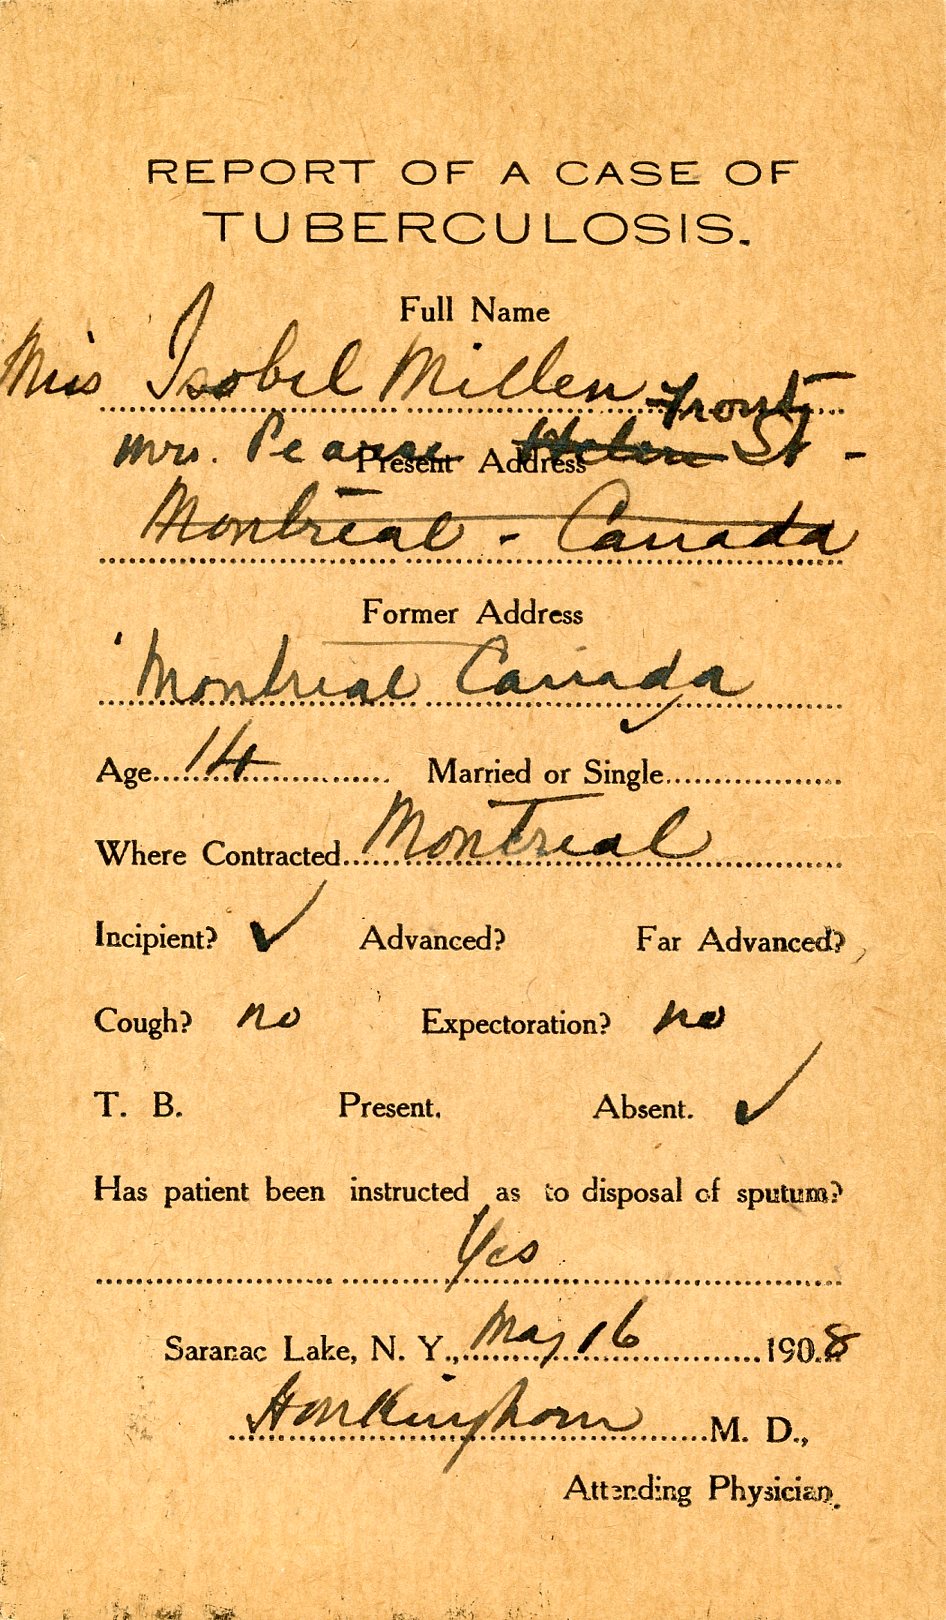 REPORT OF A CASE OF
TUBERCULOSIS.
Full Name
Miss Isobel Millen
Front
Mrs. Pearse Helen St -
Present Address
Montreal - Canada
Former Address
Montreal Canada
Age 14 Married or Single
Where Contracted Montreal
Incipient? ✓ Advanced? Far Advanced?
Cough? no Expectoration? no
T. B. Present. Absent. ✓
Has patient been instructed as to disposal of sputum?
Yes
Saranac Lake, N. Y., May 16 1908
M. D.,
Attending Physician.